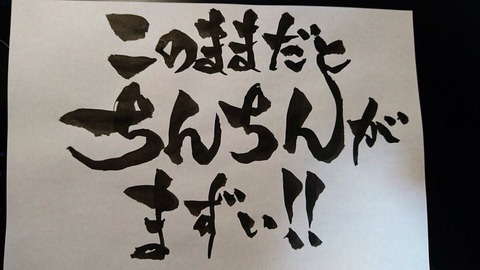 このままだと
ちんちんが
まずい!!